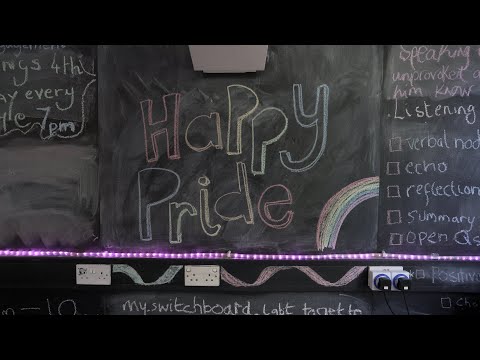 ings 4th
ay every
7pm
Happy
Pride
Speaking
unprovoked
him know
Listening
verbal nod
echo
reflection
summary
Open Qs
Positive
my switchboard